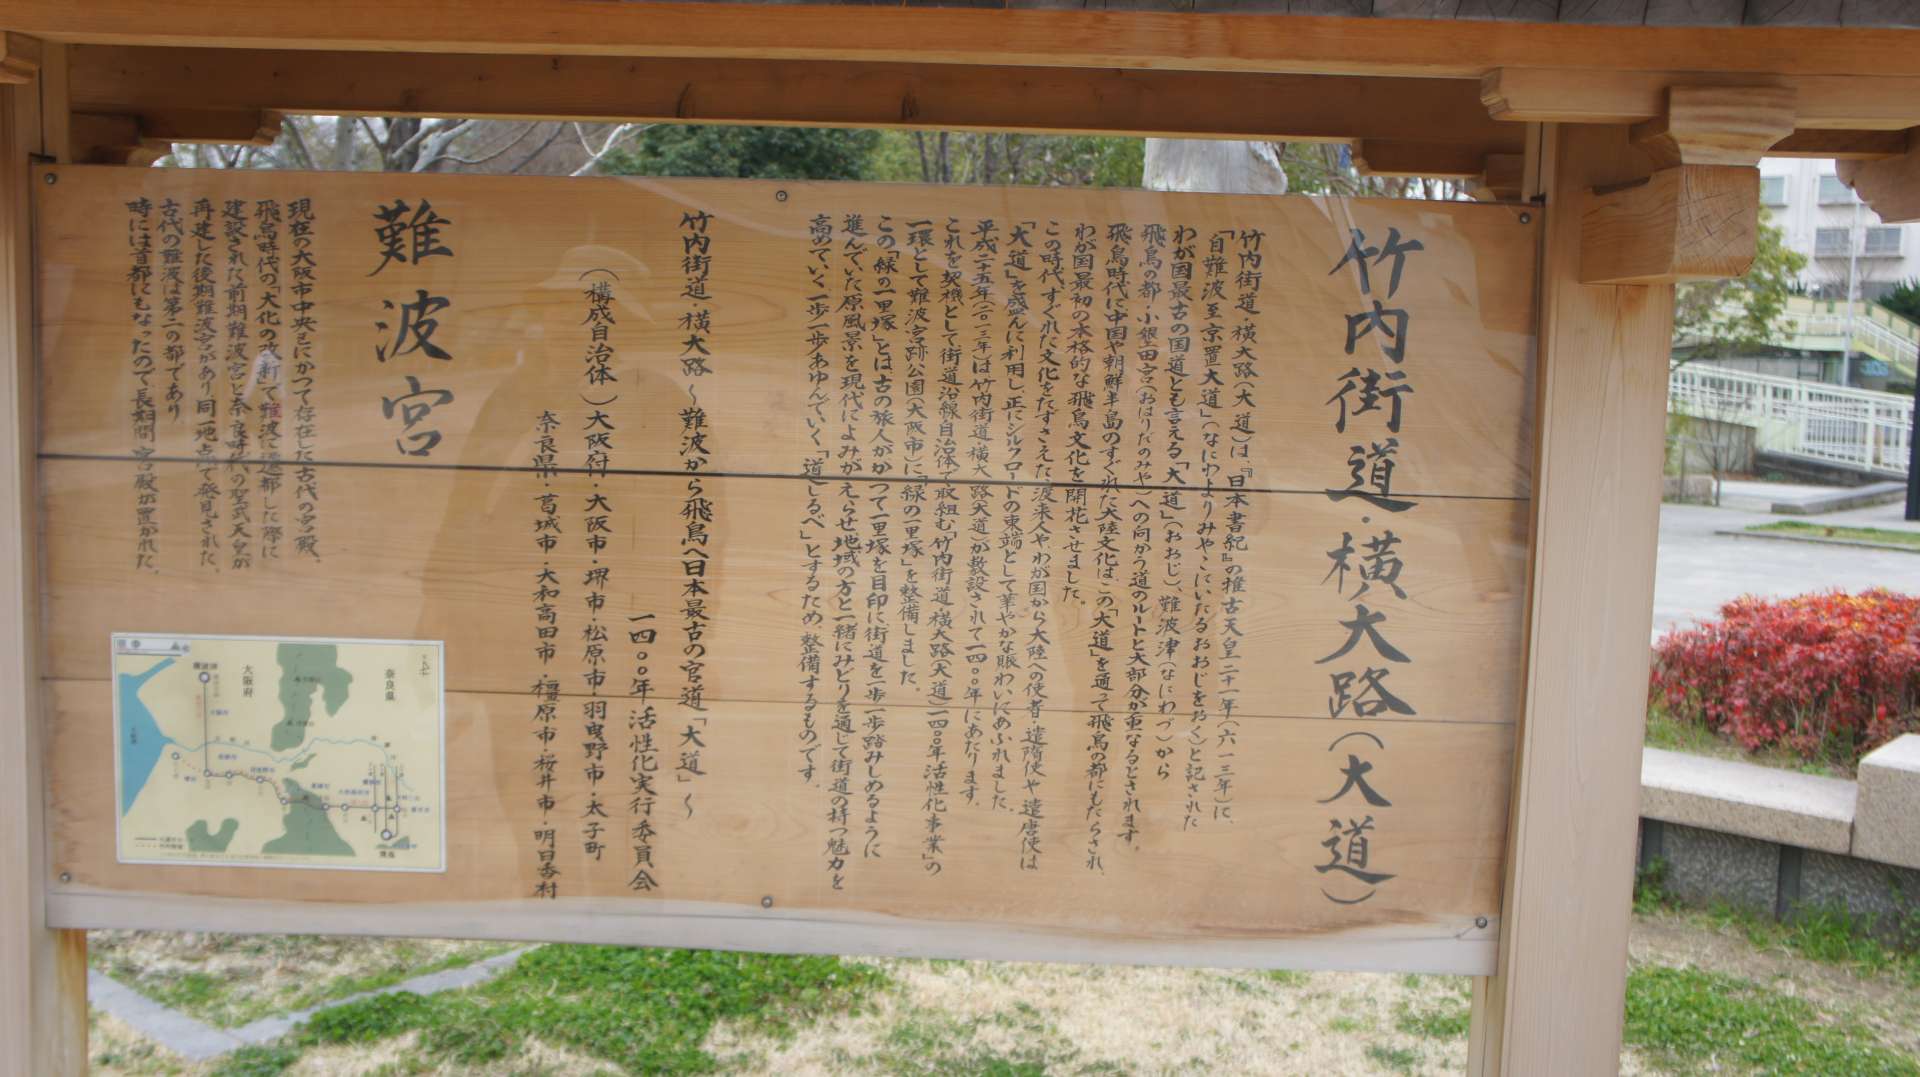 竹内街道・横大路(大道)
竹内街道・横大路(大道)は、『日本書紀』の推古天皇二十一年(六一三年)に、
「自難波至京置大道」(なにわよりみやこにいたるおおじをおく)と記された
わが国最古の国道とも言える「大道」(おおじ)、難波津(なにわづ)から
飛鳥の都・小墾田宮(おはりだのみや)への向かう道のルートと大部分が重なるとされます。
飛鳥時代に中国や朝鮮半島のすぐれた大陸文化は、この「大道」を通って飛鳥の都にもたらされ、
わが国最初の本格的な飛鳥文化を開花させました。
この時代、すぐれた文化をたずさえた渡来人やわが国から大陸への使者・遣隋使や遣唐使は
「大道」を盛んに利用し、正にシルクロードの東端として華やかな賑わいにあふれました。
平成二十五年(二〇一三年)は竹内街道・横大路(大道)が敷設されて一四〇〇年にあたります。
これを契機として街道沿線自治体で取組む「竹内街道・横大路(大道)一四〇〇年活性化事業」の
一環として難波宮跡公園(大阪市)に「緑の一里塚」を整備しました。
この「緑の一里塚」とは古の旅人がかつて一里塚を目印に街道を一歩一歩踏みしめるように
進んでいた原風景を現代によみがえらせ地域の方と一緒にみどりを通じて街道の持つ魅力を
高めていく一歩一歩あゆんでいく「道しるべ」とするため、整備するものです。
竹内街道・横大路 ~難波から飛鳥へ日本最古の官道「大道」~
一四〇〇年活性化実行委員会
(構成自治体)大阪府・大阪市・堺市・松原市・羽曳野市・太子町
奈良県・葛城市・大和高田市・橿原市・桜井市・明日香村
難波宮
現在の大阪市中央区にかつて存在した古代の宮殿、
飛鳥時代の「大化の改新」で難波に遷都した際に
建設された前期難波宮と奈良時代の聖武天皇が
再建した後期難波宮があり同一地点で発見された。
古代の難波は第二の都であり
時には首都にもなったので、長期間、宮殿が置かれた。
大阪府
奈良県